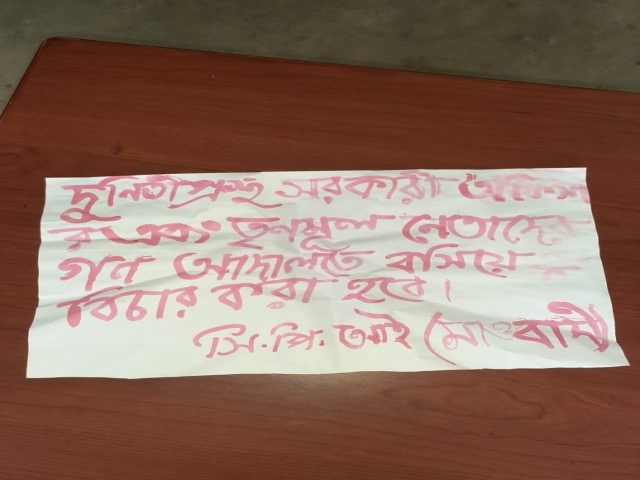 দুর্নিতীগ্রস্থ সরকারী
র এবং তৃনমূল নেতাদের
গন আদালতে বসিয়ে
বিচার করা হবে।
সি.পি.আই (মাওবাদী)